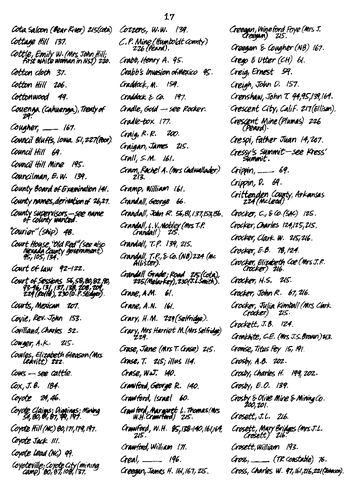 17
Cota Saloon (Bear River) 215(cota)
Cottage Hill 137.
Cottle, Emily W. (Mrs. John Hill;
first white woman in NSJ) 220.
Cotton cloth 37.
Cotton Hill 206.
Cottonwood 49.
Couenga (Cahuenga), Treaty of
29.
Cougher, ___ 167.
Council Bluffs, Iowa 51, 227(Moor)
Council Hill 69.
Council Hill Mine 195.
Councilman, E.W. 139.
County Board of Examination 141.
County names, derivation of 26,27.
County supervisors—see name
of county wanted.
"Courier" (Ship) 48.
Court House "Old Red" (see also
Nevada County government)
95, 105, 134.
Court of law 92-122.
Court of Sessions
Courts, Mexican 207.
Covie, Rev. John 153.
Covillaud, Charles 52.
Cowger, A.K. 215.
Cowles, Elizabeth Eleanor (Mrs
Leavitt) 222.
Cows — see cattle.
Cox, J.B. 184.
Coyote 24, 46.
Coyote Claims; Diggings; Mining
Coyote Hill (NC) 80, 171, 179, 197.
Coyote Jack 111.
Coyote Lead (NC) 49.
Coyoteville; Coyote City (mining
camp) 80, 87, 108, 187.
Cozzens, W.W. 139.
C.P. Mine (Humboldt County)
226 (Penard).
Crabb, Henry A. 95.
Crabb's Invasion of Mexico 95.
Craddick, M. 159.
Craddick & Co. 197.
Cradle, Gold — see Rocker.
Cradle-box 177.
Craig, R.R. 200.
Craigan, James 215.
Crall, S.M. 161.
Cram, Rachel A. (Mrs Cadwallader)
213.
Cramp, William 161.
Crandall, George 66.
Crandall, John R. 56, 81, 137, 153, 156.
Crandall, L.V. Nobley (Mrs T.P.
Crandall) 215.
Crandall, T.P. 139, 215.
Crandall, T.P. & Co. (NB) 224 (Mc
Allister).
Crandall Grade; Road 215 (Cota),
225 (Meserker), 230 (Z.L. Smith).
Crane, A.M. 61.
Crane, A.M. 161.
Crary, H.M. 229 (Selfridge).
Crary, Mrs Harriet M. (Mrs Selfridge)
229.
Crase, Jane (Mrs T. Crase) 215.
Crase, T. 215; illus 114.
Crase, WmT. 140.
Crawford, George R. 140.
Crawford, Israel 60.
Crawford, Margaret L. Thomas (Mrs
W.H. Crawford) 215.
Crawford, W.H. 85, 138-140, 161, 169,
215.
Crawford, William 171.
Creal, ___ 196.
Creegan, James H. 161, 167, 215.
Creegan, Winaford Foye (Mrs J.
Creegan) 215.
Creegan & Cougher (NB) 167.
Crego & Utter (CH) 61.
Creig, Ernest 59.
Creigh, John D. 157.
Crenshaw, John T. 94, 95, 139, 164.
Crescent City, Calif. 217 (Ellison).
Crescent Mine (Plumas) 226
(Penard).
Crespi, Father Juan 19, 207.
Cressy's Summit — see Kress'
Summit.
Crippin, ___ 69.
Crippin, D. 69.
Crittenden County, Arkansas
224 (McLeod)
Crocker, C., & Co (SAC) 125.
Crocker, Charles 124, 125, 215.
Crocker, Clark W. 215, 216.
Crocker, E.B. 78, 124
Crocker, Elizabeth Coe (Mrs J.R.
Crocker) 216.
Crocker, H.S. 215.
Crocker, John R. 67, 216.
Crocker, Julia Kimball (Mrs Clark
Crocker) 215.
Crockett, J.B. 124.
Cromkite, C.E. (Mrs J.S. Brown) 143.
Cronise, Titus Fey 15, 191.
Crosby, A.B. 202.
Crosby, Charles H. 199, 202.
Crosby, E.O. 139.
Crosby & Olive Mine & Mining Co.
200, 201.
Crosett, J.L. 216.
Crosett, Mary Bridges (Mrs J.L.
Crosett) 216.
Crosett, William 193.
Cross, ___ (TR Constable) 76.
Cross, Charles W. 97, 161, 216, 221 (Cannon).